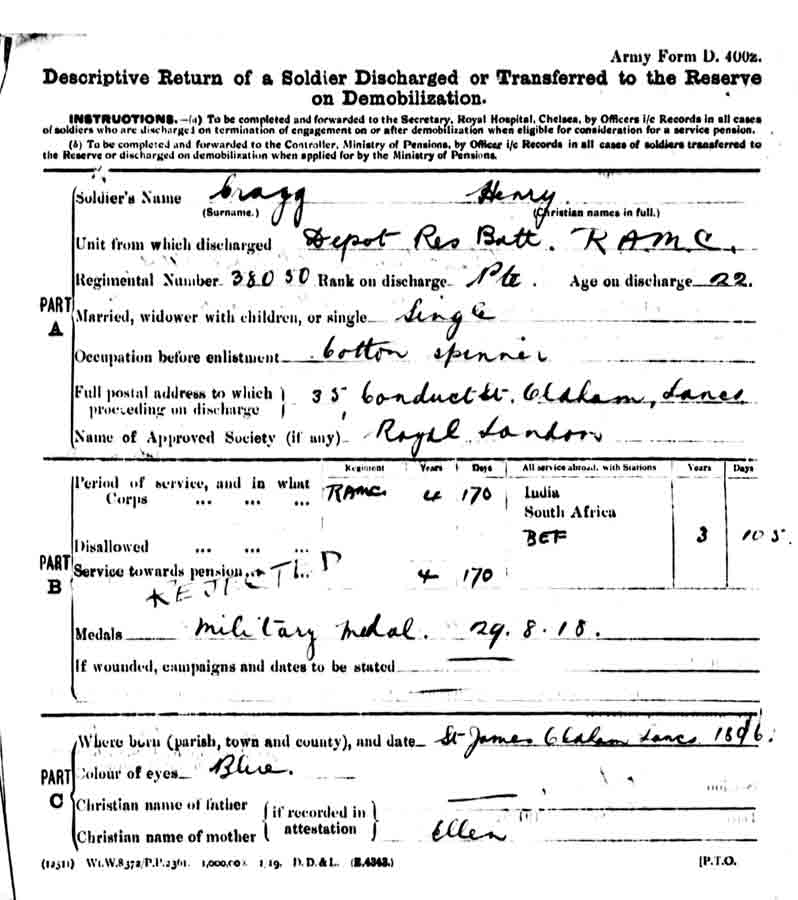 Army Form D. 400z.
Descriptive Return of a Soldier Discharged or Transferred to the Reserve
on Demobilization.
INSTRUCTIONS.—(a) To be completed and forwarded to the Secretary, Royal Hospital, Chelsea, by Officers i/c Records in all cases
of soldiers who are discharged on termination of engagement on or after demobilization when eligible for consideration for a service pension.
(b) To be completed and forwarded to the Controller, Ministry of Pensions, by Officer i/c Records in all cases of soldiers transferred to
the Reserve or discharged on demobilization when applied for by the Ministry of Pensions.
PART A
Soldier's Name Cragg Henry
(Surname.) (Christian names in full.)
Unit from which discharged Depot Res Batt. RAMC.
Regimental Number 38050 Rank on discharge Pte. Age on discharge 22.
Married, widower with children, or single Single
Occupation before enlistment Cotton spinner
Full postal address to which proceeding on discharge 35 Conduct St. Oldham, Lancs
Name of Approved Society (if any) Royal London
PART B
Regiment Years Days All service abroad, with Stations Years Days
Period of service, and in what RAMC 4 170 India
Corps ... ... ... South Africa
BEF 3 105.
Disallowed ... ... ...
Service towards pension 4 170
REJECTED
Medals Military Medal. 29.8.18.
If wounded, campaigns and dates to be stated
PART C
Where born (parish, town and county), and date St James Oldham Lancs 1896.
Colour of eyes Blue.
Christian name of father { if recorded in
Christian name of mother attestation } Ellen
(12511) Wt.W.8372/P.P.2361. 1,000,00 1/19. D.D.&L. (E.4343.) [P.T.O.